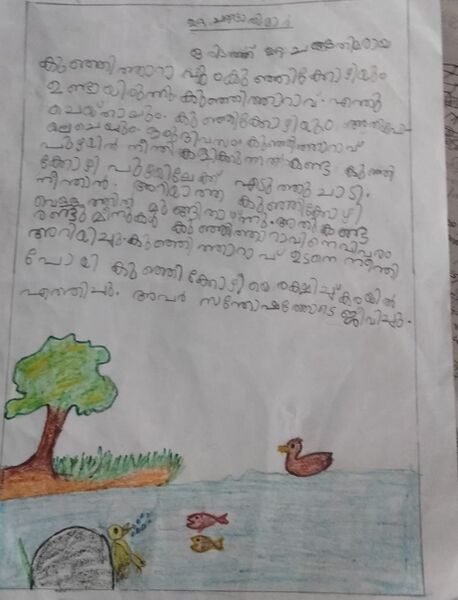 ഉറ്റ ചങ്ങാതിമാർ
ഒരിടത്ത് ഉറ്റ ചങ്ങാതിമാരായ
കുഞ്ഞിത്താറാവും കുഞ്ഞിക്കോഴിയും
ഉണ്ടായിരുന്നു. കുഞ്ഞിത്താറാവ് എന്തു
ചെയ്താലും കുഞ്ഞിക്കോഴിയും അതുപോ
ലെ ചെയ്യും. ഒരുദിവസം കുഞ്ഞിത്താറാവ്
പുഴയിൽ നീന്തി കളിക്കുന്നത് കണ്ട കുഞ്ഞി
ക്കോഴി പുഴയിലേക്ക് എടുത്തു ചാടി.
നീന്താൻ അറിയാത്ത കുഞ്ഞിക്കോഴി
വെള്ളത്തിൽ മുങ്ങിതാഴ്ന്നു. അതു കണ്ട
രണ്ടു മീനുകൾ കുഞ്ഞിത്താറാവിനെ വിവരം
അറിയിച്ചു. കുഞ്ഞിത്താറാവ് ഉടനെ നീന്തി
പോയി കുഞ്ഞിക്കോഴിയെ രക്ഷിച്ച് കരയിൽ
എത്തിച്ചു. അവർ സന്തോഷത്തോടെ ജീവിച്ചു.